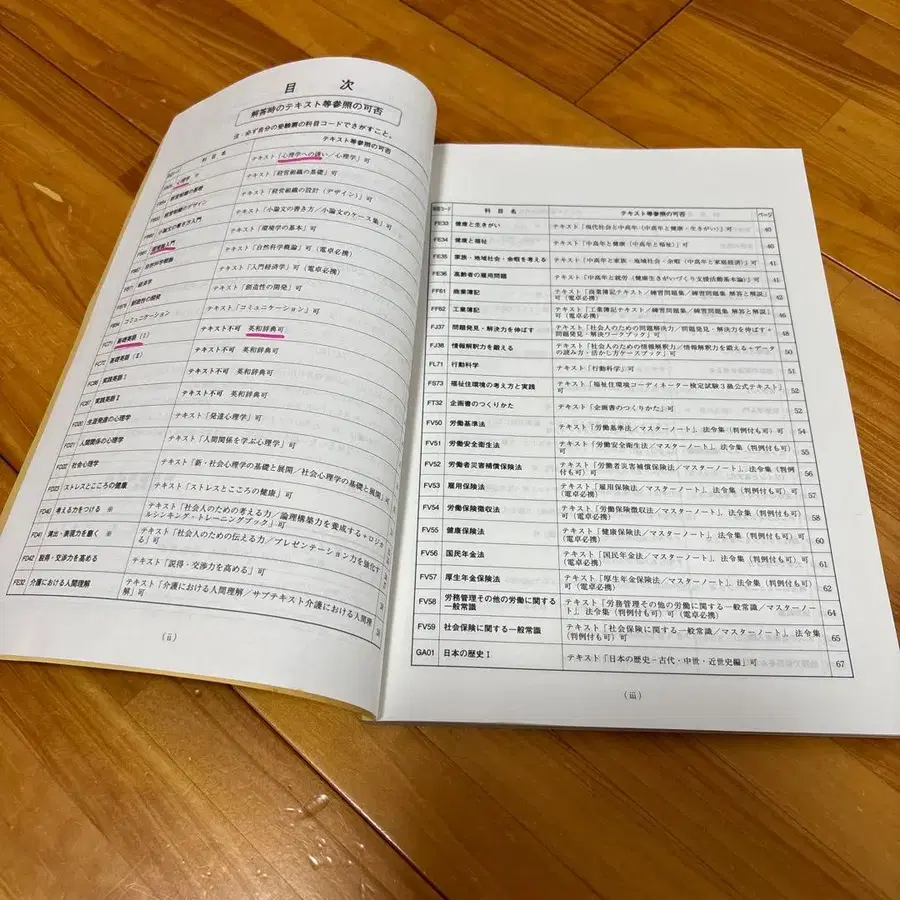 目次
解答時のテキスト等参照の可否
注・必ず自分の受験票の科目コードでさがすこと。
科目名 テキスト等参照の可否
心理学 ※ テキスト「心理学への誘い/心理学」可
経営組織の基礎 テキスト「経営組織の基礎」可
経営組織のデザイン テキスト「経営組織の設計(デザイン)」可
小論文の書き方入門 テキスト「小論文の書き方/小論文のケース集」可
テキスト「環境学の基本」可
自然科学概論 テキスト「自然科学概論」可(電卓必携)
経済学 テキスト「入門経済学」可(電卓必携)
創造性の開発 テキスト「創造性の開発」可
コミュニケーション テキスト「コミュニケーション」可
FC71 基礎英語(I) テキスト不可 英和辞典可
FC72 基礎英語(II) テキスト不可 英和辞典可
実践英語I テキスト不可 英和辞典可
テキスト不可 英和辞典可
生涯発達の心理学 テキスト「発達心理学」可
FD21 人間関係の心理学 テキスト「人間関係を学ぶ心理学」可
FD22 社会心理学 テキスト「新・社会心理学の基礎と展開/社会心理学の基礎と展開」可
FD23 ストレスとこころの健康 テキスト「ストレスとこころの健康」可
FD40 考える力をつける ※ テキスト「社会人のための考える力/論理構築力を養成する+ロジカルシンキング・トレーニングブック」可
FD41 演出・表現力を磨く ※ テキスト「社会人のための伝える力/プレゼンテーション力を強化する」可
FD42 説得・交渉力を高める テキスト「説得・交渉力を高める」可
FE32 介護における人間理解 テキスト「介護における人間理解/サブテキスト介護における人間理解」可
(ii)
科目コード 科目名 テキスト等参照の可否 ページ
FE33 健康と生きがい テキスト「現代社会と中高年(中高年と健康・生きがい)」可 40
FE34 健康と福祉 テキスト「中高年と健康(中高年と福祉)」可 40
FE35 家族・地域社会・余暇を考える テキスト「中高年と家族・地域社会・余暇(中高年と家庭経済)」可 41
FE36 高齢者の雇用問題 テキスト「中高年と就労(健康生きがいづくり支援活動基本論)」可 41
FF61 商業簿記 テキスト「商業簿記テキスト/練習問題集/練習問題集 解答と解説」可(電卓必携) 42
FF62 工業簿記 テキスト「工業簿記テキスト/練習問題集/練習問題集 解答と解説」可(電卓必携) 46
FJ37 問題発見・解決力を伸ばす テキスト「社会人のための問題解決力/問題発見・解決力を伸ばす+問題発見・解決ワークブック」可 48
FJ38 情報解釈力を鍛える テキスト「社会人のための情報解釈力/情報解釈力を鍛える+データの読み方・活かし方ケースブック」可 50
FL71 行動科学 テキスト「行動科学」可 51
FS73 福祉住環境の考え方と実践 テキスト「福祉住環境コーディネーター検定試験3級公式テキスト」可 52
FT32 企画書のつくりかた テキスト「企画書のつくりかた」可 52
FV50 労働基準法 テキスト「労働基準法/マスターノート」、法令集(判例付も可)可 54
FV51 労働安全衛生法 テキスト「労働安全衛生法/マスターノート」、法令集(判例付も可)可 55
FV52 労働者災害補償保険法 テキスト「労働者災害補償保険法/マスターノート」、法令集(判例付も可)可 56
FV53 雇用保険法 テキスト「雇用保険法/マスターノート」、法令集(判例付も可)可(電卓必携) 57
FV54 労働保険徴収法 テキスト「労働保険徴収法/マスターノート」、法令集(判例付も可)可(電卓必携) 58
FV55 健康保険法 テキスト「健康保険法/マスターノート」、法令集(判例付も可)可(電卓必携) 60
FV56 国民年金法 テキスト「国民年金法/マスターノート」、法令集(判例付も可)可(電卓必携) 61
FV57 厚生年金保険法 テキスト「厚生年金保険法/マスターノート」、法令集(判例付も可)可(電卓必携) 62
FV58 労務管理その他の労働に関する一般常識 テキスト「労務管理その他の労働に関する一般常識/マスターノート」、法令集(判例付も可)可(電卓必携) 64
FV59 社会保険に関する一般常識 テキスト「社会保険に関する一般常識/マスターノート」、法令集(判例付も可)可 65
GA01 日本の歴史I テキスト「日本の歴史-古代・中世・近世史編」可 67
(iii)